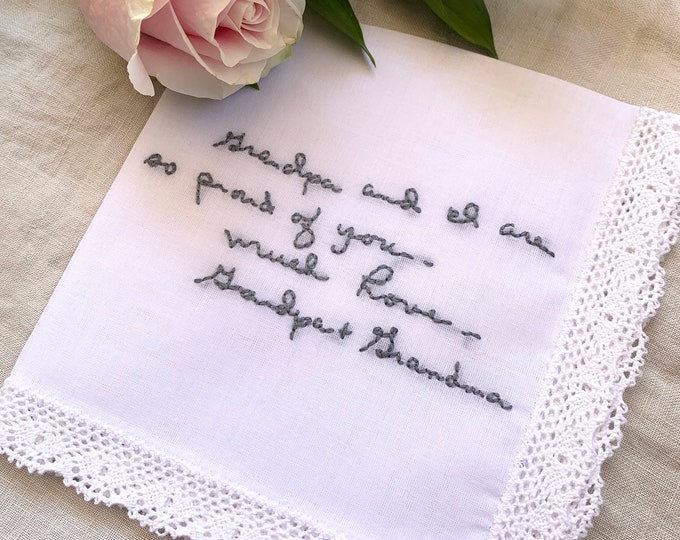 Grandpa and I are
so proud of you--
Much Love--
Grandpa + Grandma